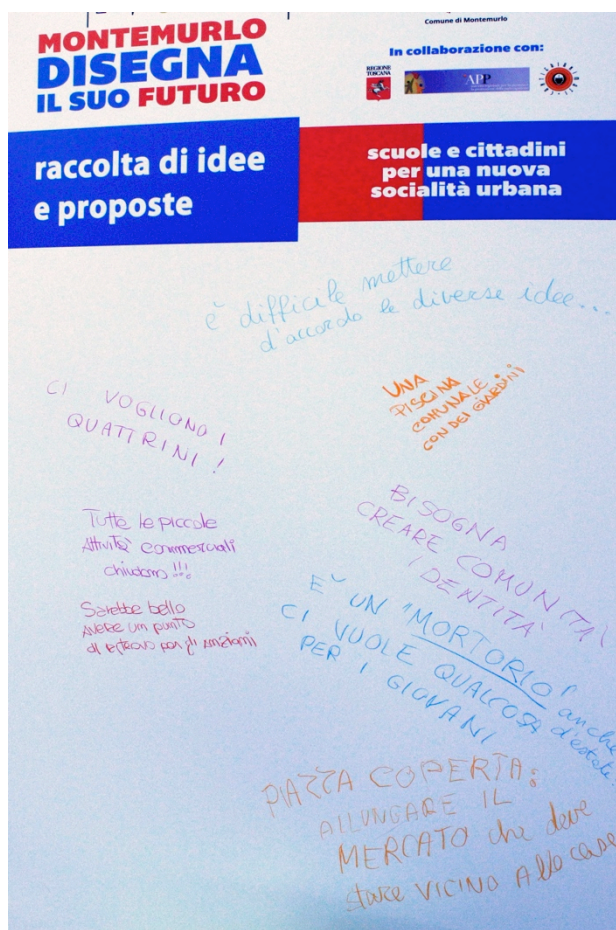 MONTEMURLO
DISEGNA
IL SUO FUTURO
Comune di Montemurlo
In collaborazione con:
REGIONE
TOSCANA
APP
raccolta di idee
e proposte
scuole e cittadini
per una nuova
socialità urbana
è difficile mettere
d'accordo le diverse idee...
CI VOGLIONO I
QUATTRINI!
UNA
PISCINA
COMUNALE
CON DEI GIARDINI
Tutte le piccole
Attività commerciali
chiudono!!!
BISOGNA
CREARE COMUNITA'
IDENTITÀ
Sarebbe bello
AVERE UM PUNTO
di ritrovo per gli anziani
E' UN "MORTORIO"
CI VUOLE QUALCOSA anche
PER I GIOVANI d'estate.
PIAZZA COPERTA:
ALLUNGARE IL
MERCATO che deve
stare VICINO Alle case